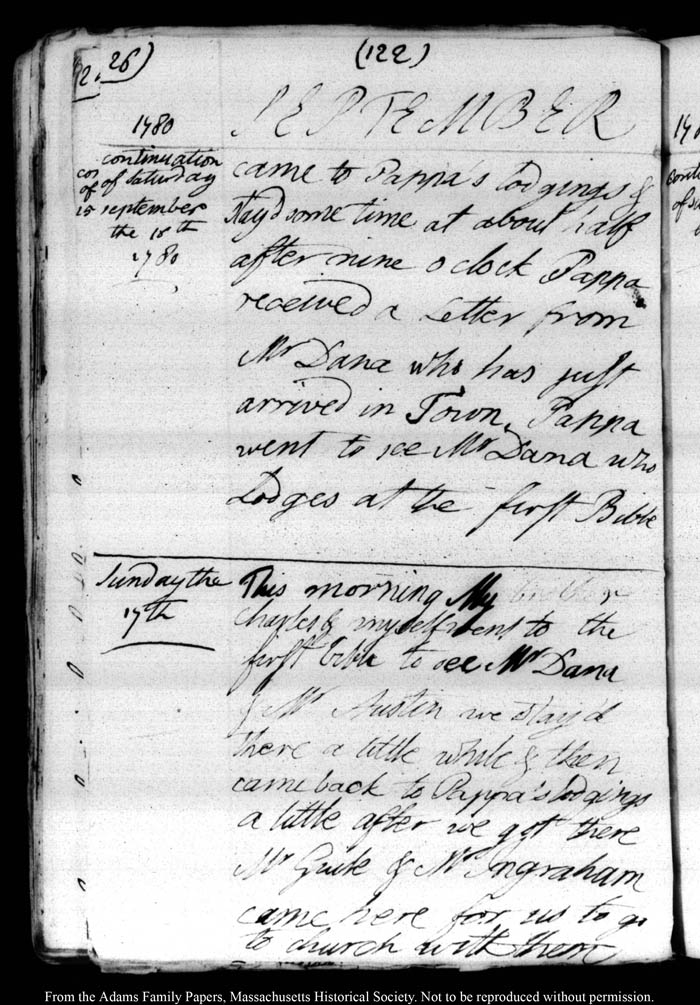 26)
(122)
1780
SEPTEMBER
continuation
of Saturday
september
the 16th
1780
came to Pappa's lodgings &
stay'd some time at about half
after nine o clock Pappa
received a Letter from
Mr Dana who has just
arrived in Town, Pappa
went to see Mr Dana who
Lodges at the first Bible
Sunday the
17th
This morning My brother
Charles & myself went to the
first bible to see Mr Dana
& Mr Austin we stay'd
there a little while & then
came back to Pappa's lodgings
a little after we got there
Mr Guile & Mr Ingraham
came here for us to go
to church with them
From the Adams Family Papers, Massachusetts Historical Society. Not to be reproduced without permission.